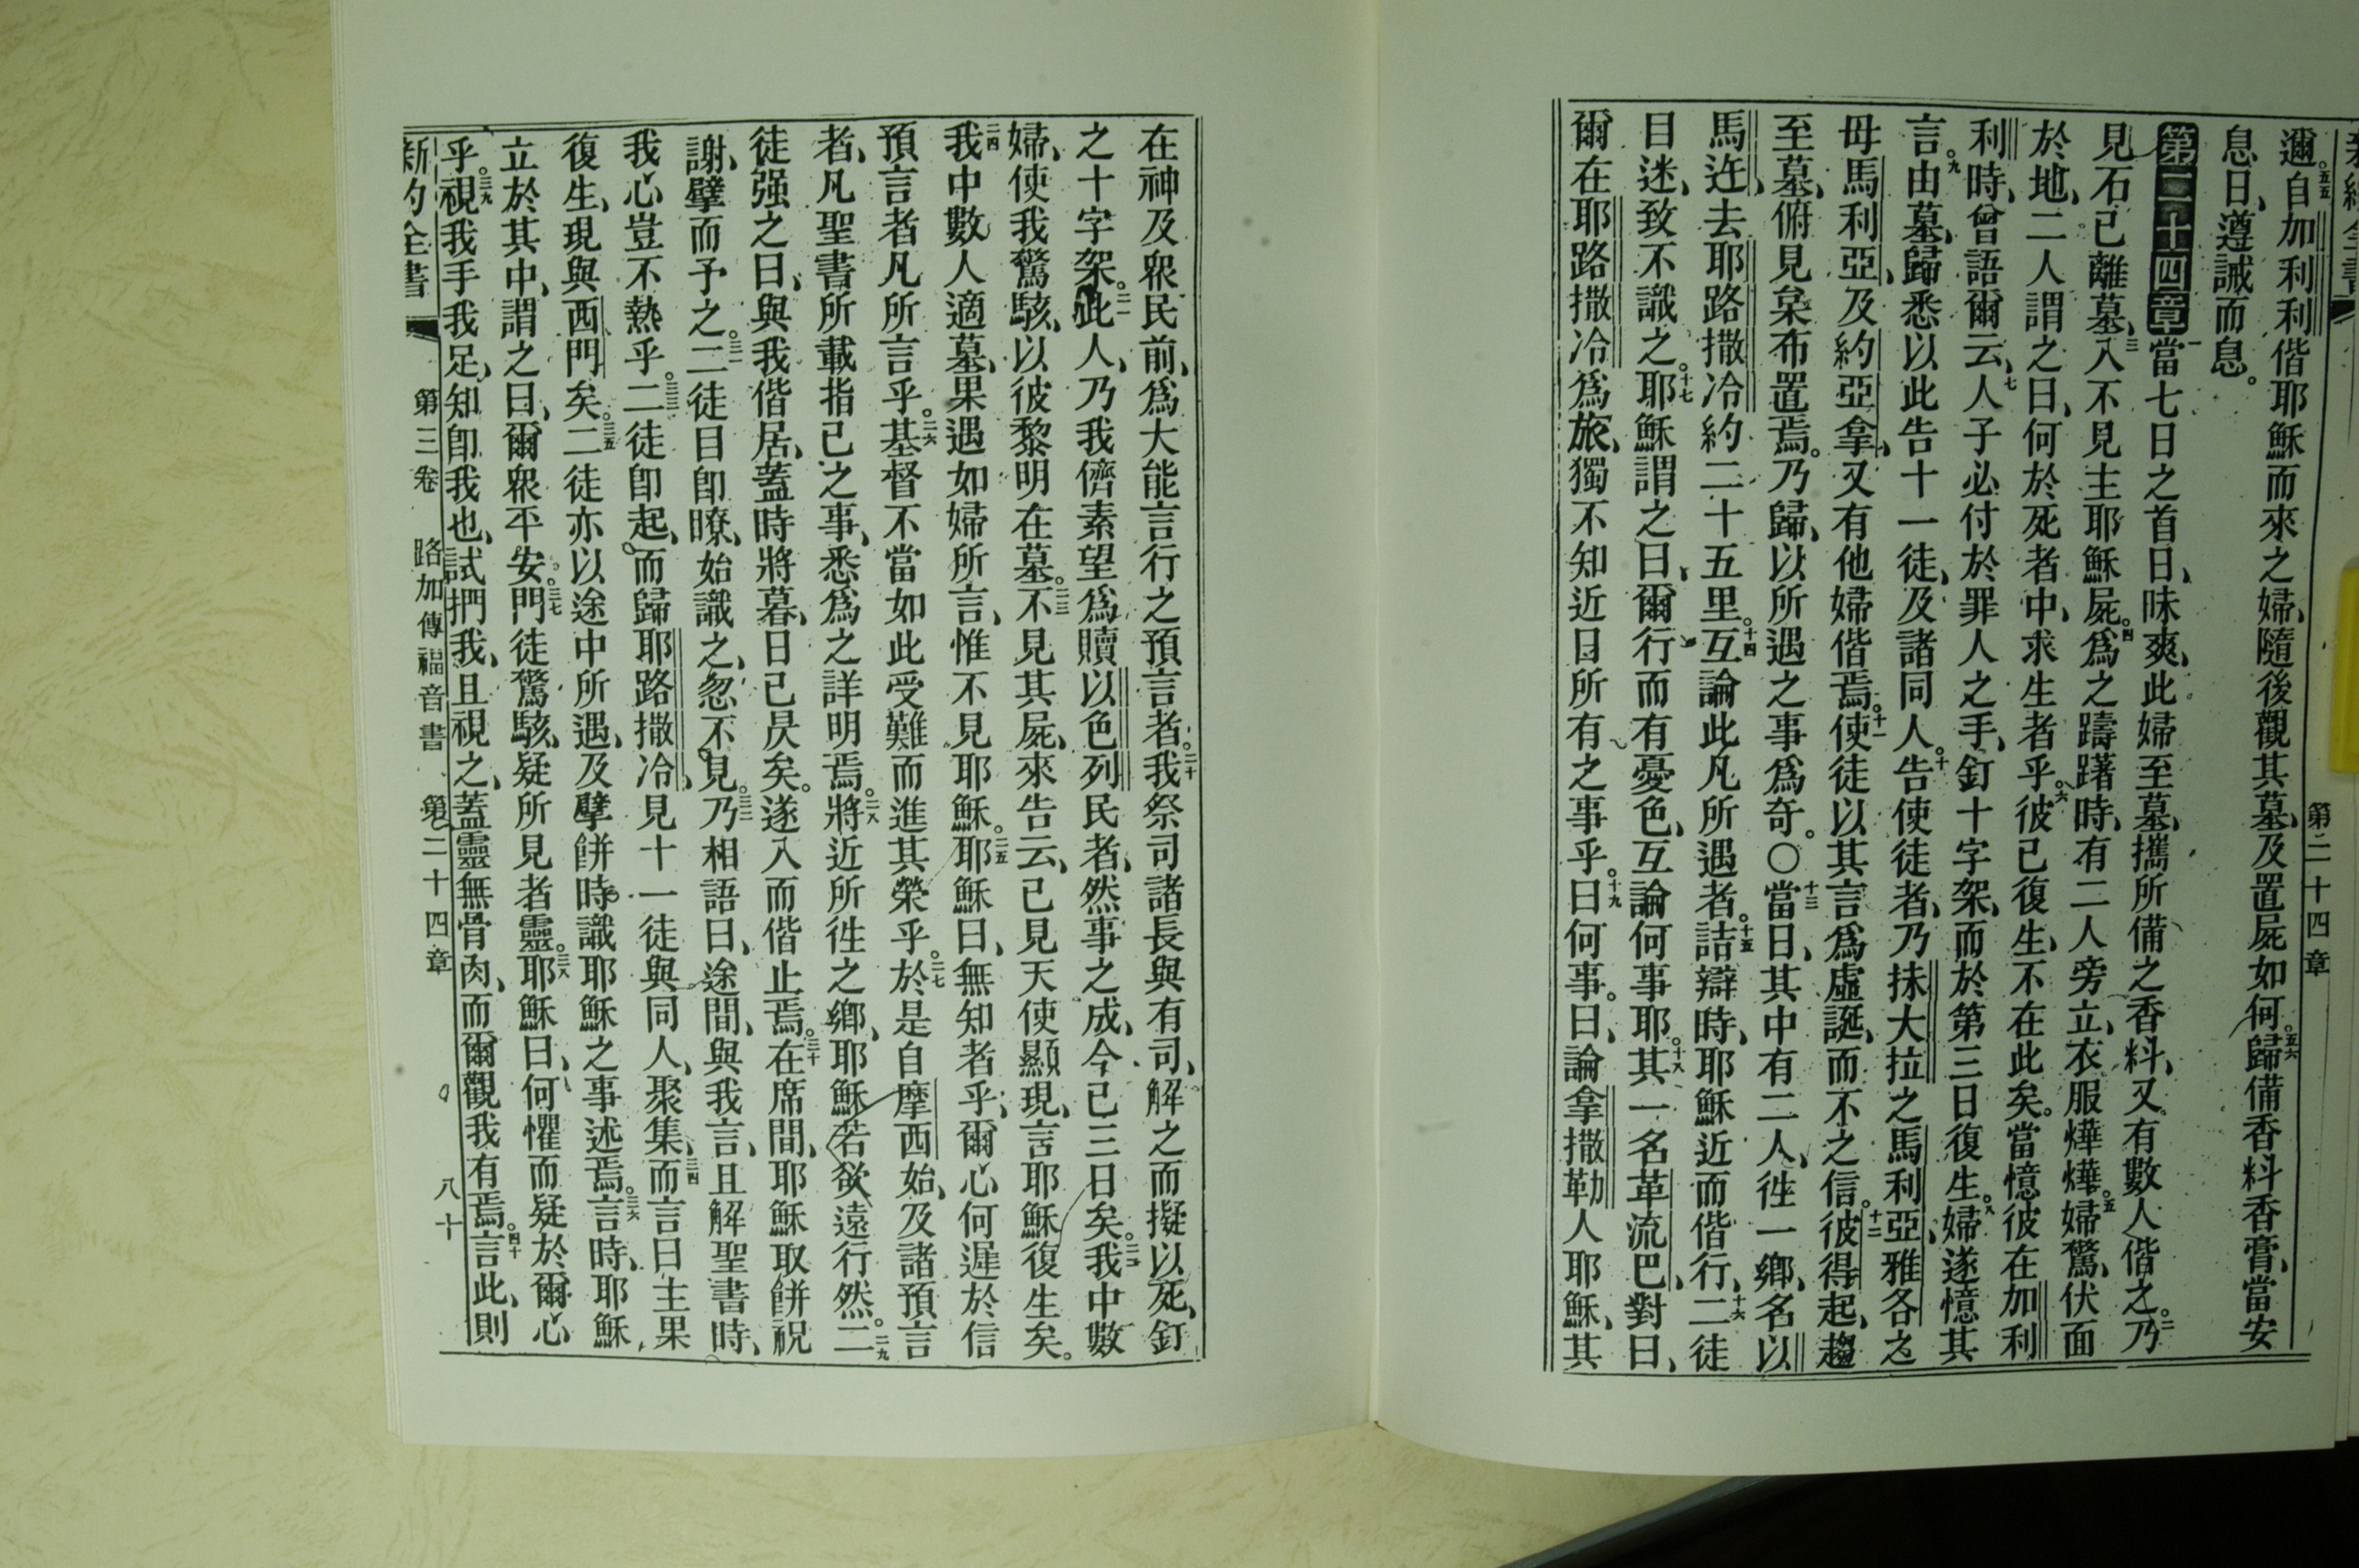 第二十四章
邇。五五自加利利偕耶穌而來之婦、隨後觀其墓、及置屍如何。五六歸備香料香膏、當安
息日、遵誡而息。
第二十四章 一當七日之首日、昧爽、此婦至墓、攜所備之香料、又有數人偕之。二乃
見石已離墓、三入不見主耶穌屍。四爲之躊躇時、有二人旁立、衣服燁燁。五婦驚、伏面
於地、二人謂之曰、何於死者中、求生者乎。六彼已復生、不在此矣。當憶彼在加利
利時、曾語爾云、七人子必付於罪人之手、釘十字架、而於第三日復生。八婦遂憶其
言。九由墓歸悉以此告十一徒、及諸同人。十告使徒者、乃抹大拉之馬利亞、雅各之
母馬利亞、及約亞拿、又有他婦偕焉。十一使徒以其言爲虛誕、而不之信。十二彼得起、趨
至墓、俯見枲布置焉。乃歸、以所遇之事爲奇。〇十三當日、其中有二人、徃一鄉、名以
馬迕、去耶路撒冷約二十五里。十四互論此凡所遇者。十五詰辯時、耶穌近而偕行、十六二徒
目迷、致不識之。十七耶穌謂之曰、爾行而有憂色、互論何事耶。十八其一名革流巴、對曰、
爾在耶路撒冷爲旅、獨不知近日所有之事乎。十九曰何事。曰、論拿撒勒人耶穌、其
在神及衆民前、爲大能言行之預言者。二十我祭司諸長與有司、解之而擬以死、釘
之十字架。二一此人、乃我儕素望爲贖以色列民者、然事之成、今已三日矣。二二我中數
婦、使我驚駭、以彼黎明在墓。二三不見其屍、來告云、已見天使顯現、言耶穌復生矣。
二四我中數人適墓、果遇如婦所言、惟不見耶穌。二五耶穌曰、無知者乎、爾心何遲於信
預言者凡所言乎。二六基督不當如此受難而進其榮乎。二七於是自摩西始、及諸預言
者、凡聖書所載指己之事、悉爲之詳明焉。二八將近所徃之鄉、耶穌若欲遠行然。二九二
徒强之曰、與我偕居、蓋時將暮、日已昃矣。遂入而偕止焉。三十在席間、耶穌取餅祝
謝、擘而予之。三一二徒目卽暸、始識之、忽不見。三二乃相語曰、途間、與我言、且解聖書時、
我心豈不熱乎。三三二徒卽起、而歸耶路撒冷、見十一徒與同人、聚集、三四而言曰主果
復生、現與西門矣。三五二徒亦以途中所遇、及擘餅時識耶穌之事述焉。三六言時、耶穌
立於其中、謂之曰、爾衆平安。三七門徒驚駭、疑所見者靈。三八耶穌曰、何懼而疑於爾心
乎。三九視我手我足、知卽我也、試捫我、且視之、蓋靈無骨肉、而爾觀我有焉。四十言此、則
新約全書 第三卷 路加傳福音書 第二十四章 八十